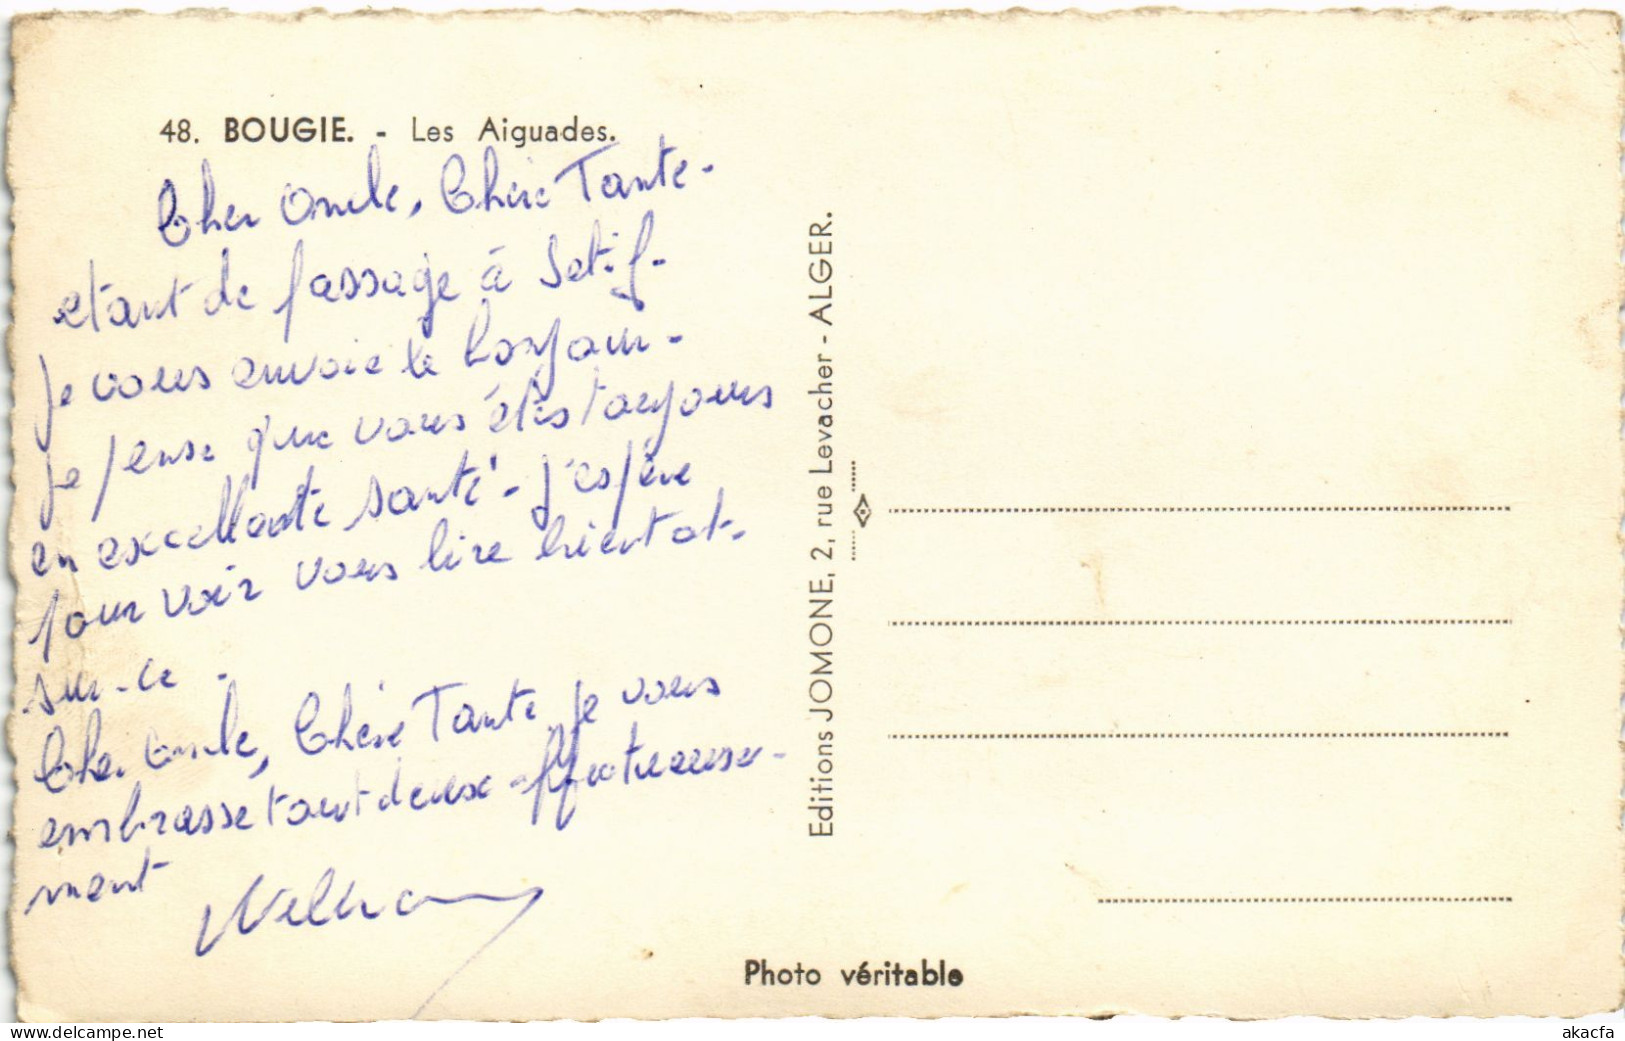 48. BOUGIE. - Les Aiguades.
Cher Oncle, Chère Tante -
etant de passage à Setif -
je vous envoie le bonjour -
je pense que vous étes toujours
en excellante santé - j'espère
pour voir vous lire bientot -
sur-ce -
Cher Oncle, Chère Tante je vous
embrasse tout deux affectueuse-
ment
Editions JOMONE, 2, rue Levacher - ALGER.
Photo véritable
www.delcampe.net
akacfa